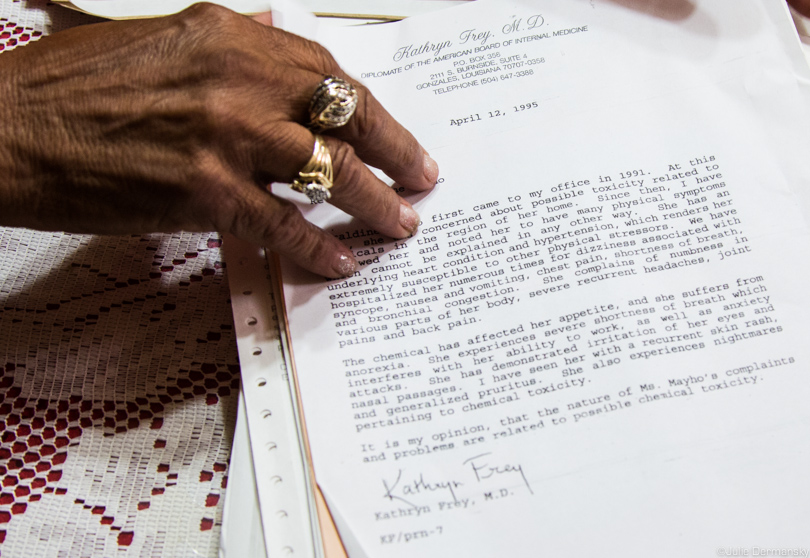 Kathryn Frey, M.D.
DIPLOMATE OF THE AMERICAN BOARD OF INTERNAL MEDICINE
P.O. BOX 356
2111 S. BURNSIDE, SUITE 4
GONZALES, LOUISIANA 70707-0356
TELEPHONE (504) 647-3388
April 12, 1995
first came to my office in 1991. At this
she concerned about possible toxicity related to
icals in the region of her home. Since then, I have
wed her and noted her to have many physical symptoms
cannot be explained in any other way. She has an
underlying heart condition and hypertension, which renders her
extremely susceptible to other physical stressors. We have
hospitalized her numerous times for dizziness associated with
syncope, nausea and vomiting, chest pain, shortness of breath,
and bronchial congestion. She complains of numbness in
various parts of her body, severe recurrent headaches, joint
pains and back pain.
The chemical has affected her appetite, and she suffers from
anorexia. She experiences severe shortness of breath which
interferes with her ability to work, as well as anxiety
attacks. She has demonstrated irritation of her eyes and
nasal passages. I have seen her with a recurrent skin rash,
and generalized pruritus. She also experiences nightmares
pertaining to chemical toxicity.
It is my opinion, that the nature of Ms. Mayho's complaints
and problems are related to possible chemical toxicity.
Kathryn Frey
Kathryn Frey, M.D.
KF/prn-7
©Julie Dermansky